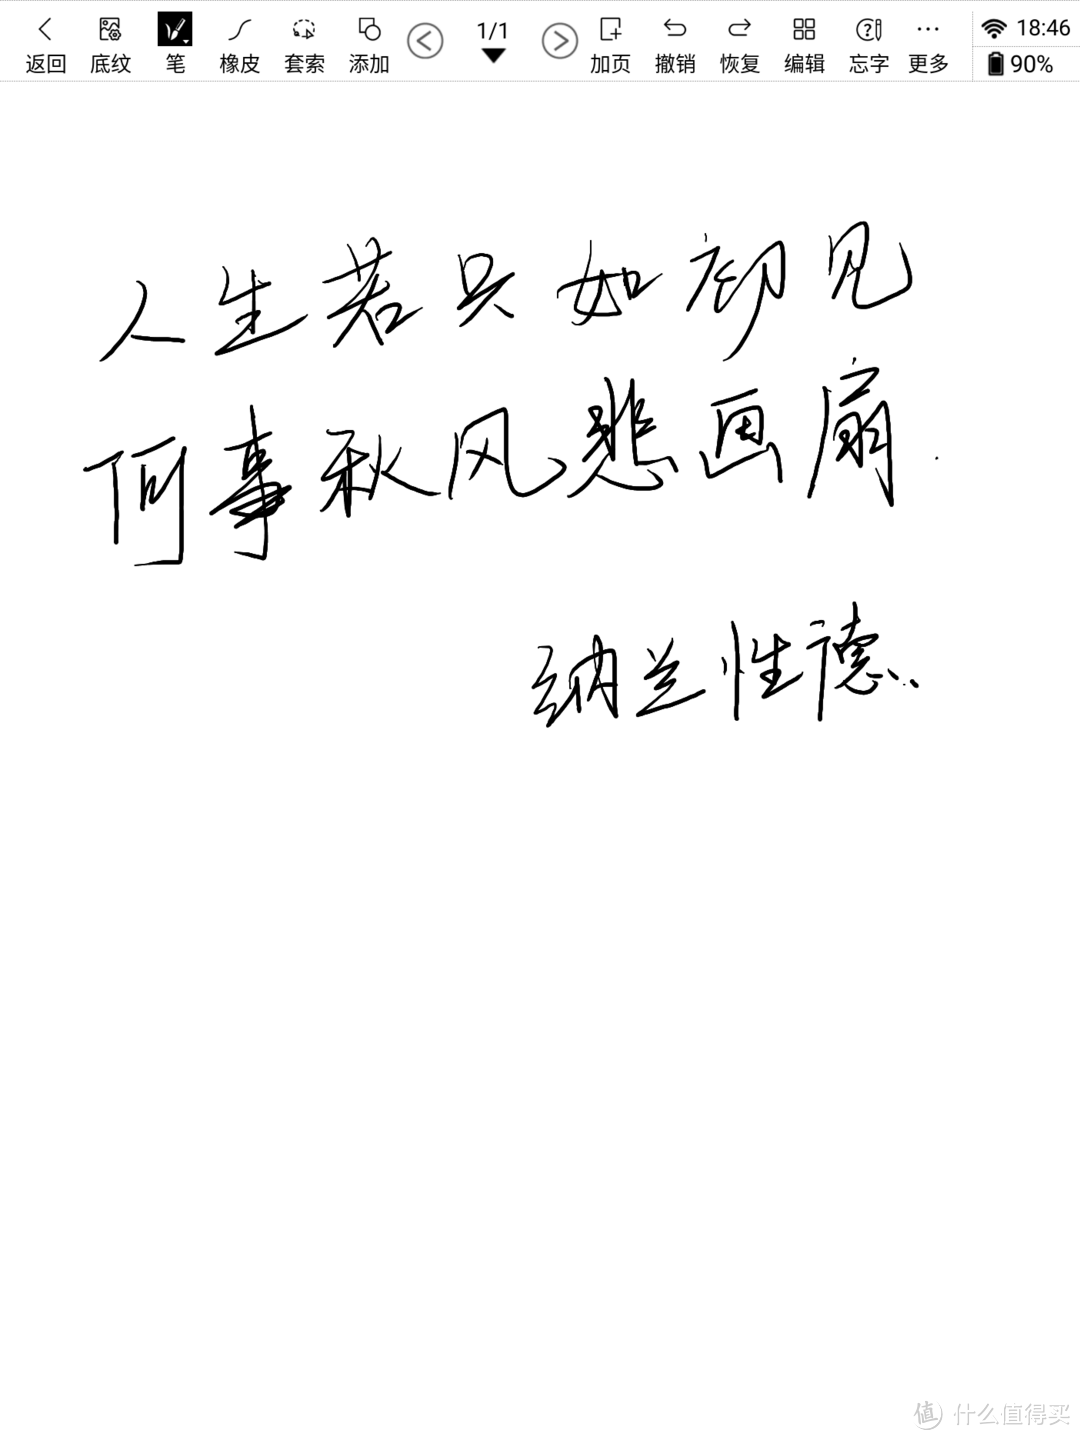 返回 底纹 笔 橡皮 套索 添加 1/1 加页 撤销 恢复 编辑 忘字 更多 18:46
90%
人生若只如初见
何事秋风悲画扇.
纳兰性德...
值 什么值得买